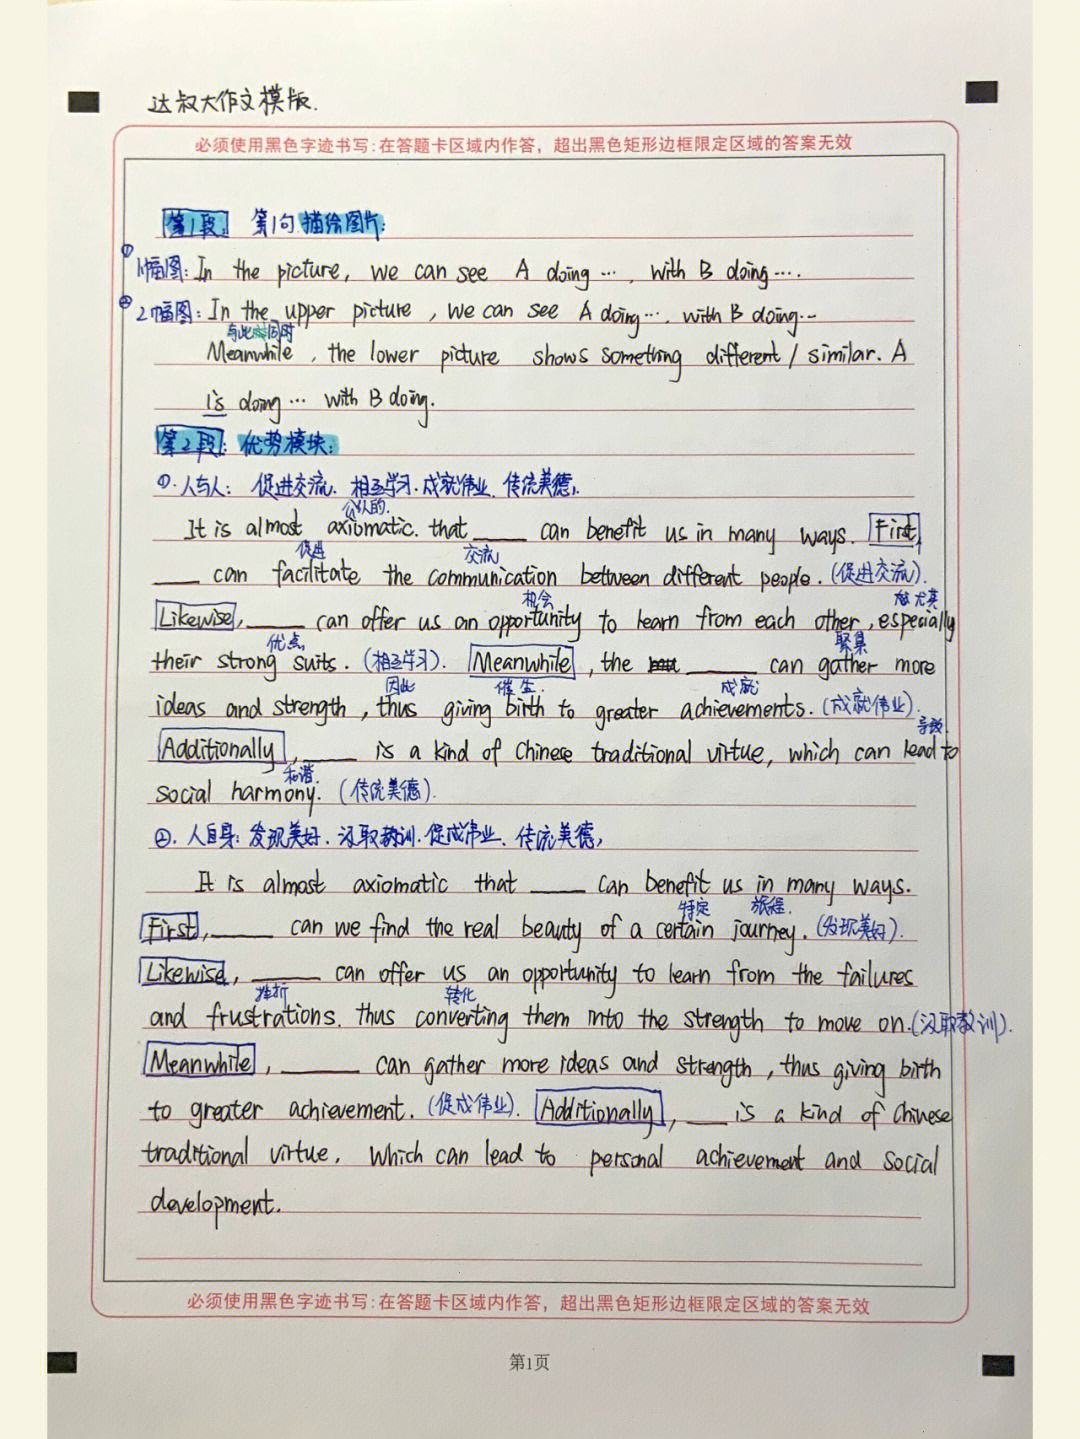 达叔大作文模版.
必须使用黑色字迹书写:在答题卡区域内作答，超出黑色矩形边框限定区域的答案无效
第1段: 第1句 描绘图片:
① 1幅图: In the picture, we can see A doing …, with B doing ….
② 2幅图: In the upper picture, we can see A doing…, with B doing…
与此同时
Meanwhile, the lower picture shows something different / similar. A
is doing … with B doing.
第2段: 优势模块:
①. 人与人: 促进交流. 相互学习. 成就伟业. 传统美德.
公认的.
It is almost axiomatic. that ____ can benefit us in many ways. First,
促进 交流
____ can facilitate the communication between different people. (促进交流).
机会 尤其
Likewise, ____ can offer us an opportunity to learn from each other, especially
优点 聚集
their strong suits. (相互学习). Meanwhile, the ____ can gather more
因此 催生. 成就
ideas and strength, thus giving birth to greater achievements. (成就伟业).
导致
Additionally, ____ is a kind of Chinese traditional virtue, which can lead to
和谐.
social harmony. (传统美德).
②. 人自身: 发现美好. 汲取教训. 促成伟业. 传统美德,
It is almost axiomatic that ____ can benefit us in many ways.
特定 旅程.
First, ____ can we find the real beauty of a certain journey. (发现美好).
Likewise, ____ can offer us an opportunity to learn from the failures
挫折 转化
and frustrations. thus converting them into the strength to move on. (汲取教训).
Meanwhile, ____ can gather more ideas and strength, thus giving birth
to greater achievement. (促成伟业). Additionally, ____ is a kind of Chinese
traditional virtue. which can lead to personal achievement and social
development.
必须使用黑色字迹书写:在答题卡区域内作答，超出黑色矩形边框限定区域的答案无效
第1页